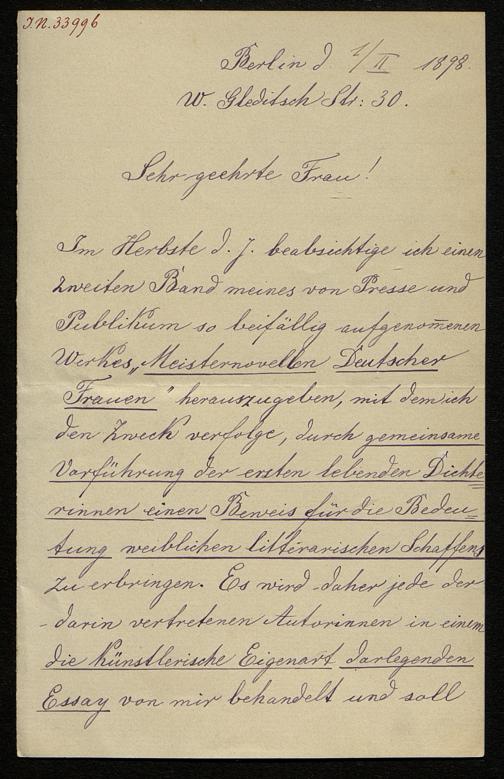 J.N. 33996
Berlin d 1/II 1898.
W. Gleditsch Str: 30.
Sehr geehrte Frau!
Im Herbste d. J. beabsichtige ich einen
zweiten Band meines von Presse und
Publikum so beifällig aufgenom̅enen
Werkes „Meisternovellen Deutscher
Frauen" herauszugeben, mit dem ich
den Zweck verfolge, durch gemeinsame
Vorführung der ersten lebenden Dichte=
rinnen einen Beweis für die Bedeu=
tung weiblichen litterarischen Schaffens
zu erbringen. Es wird daher jede der
darin vertretenen Autorinnen in einem
die künstlerische Eigenart darlegenden
Essay von mir behandelt und soll